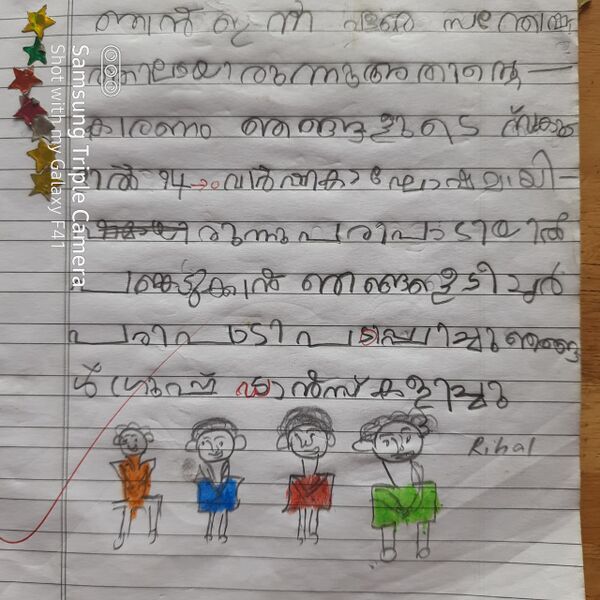 ഞാൻ ഇന്ന് വളരെ സന്തോഷ
വാനായിരുന്നു അതിന്റെ
കാരണം ഞങ്ങളുടെ സ്കൂളി
ൽ 14-ാം വാർഷികാഘോഷമായി-
രുന്നു പരിപാടിയിൽ
പങ്കെടുക്കാൻ ഞങ്ങളെ ടീച്ചർ
പരിപാടി പഠിപ്പിച്ചു ഞങ്ങ
ൾ ഗ്രൂപ്പ് ഡാൻസ് കളിച്ചു
Rihal
Samsung Triple Camera
Shot with my Galaxy F41